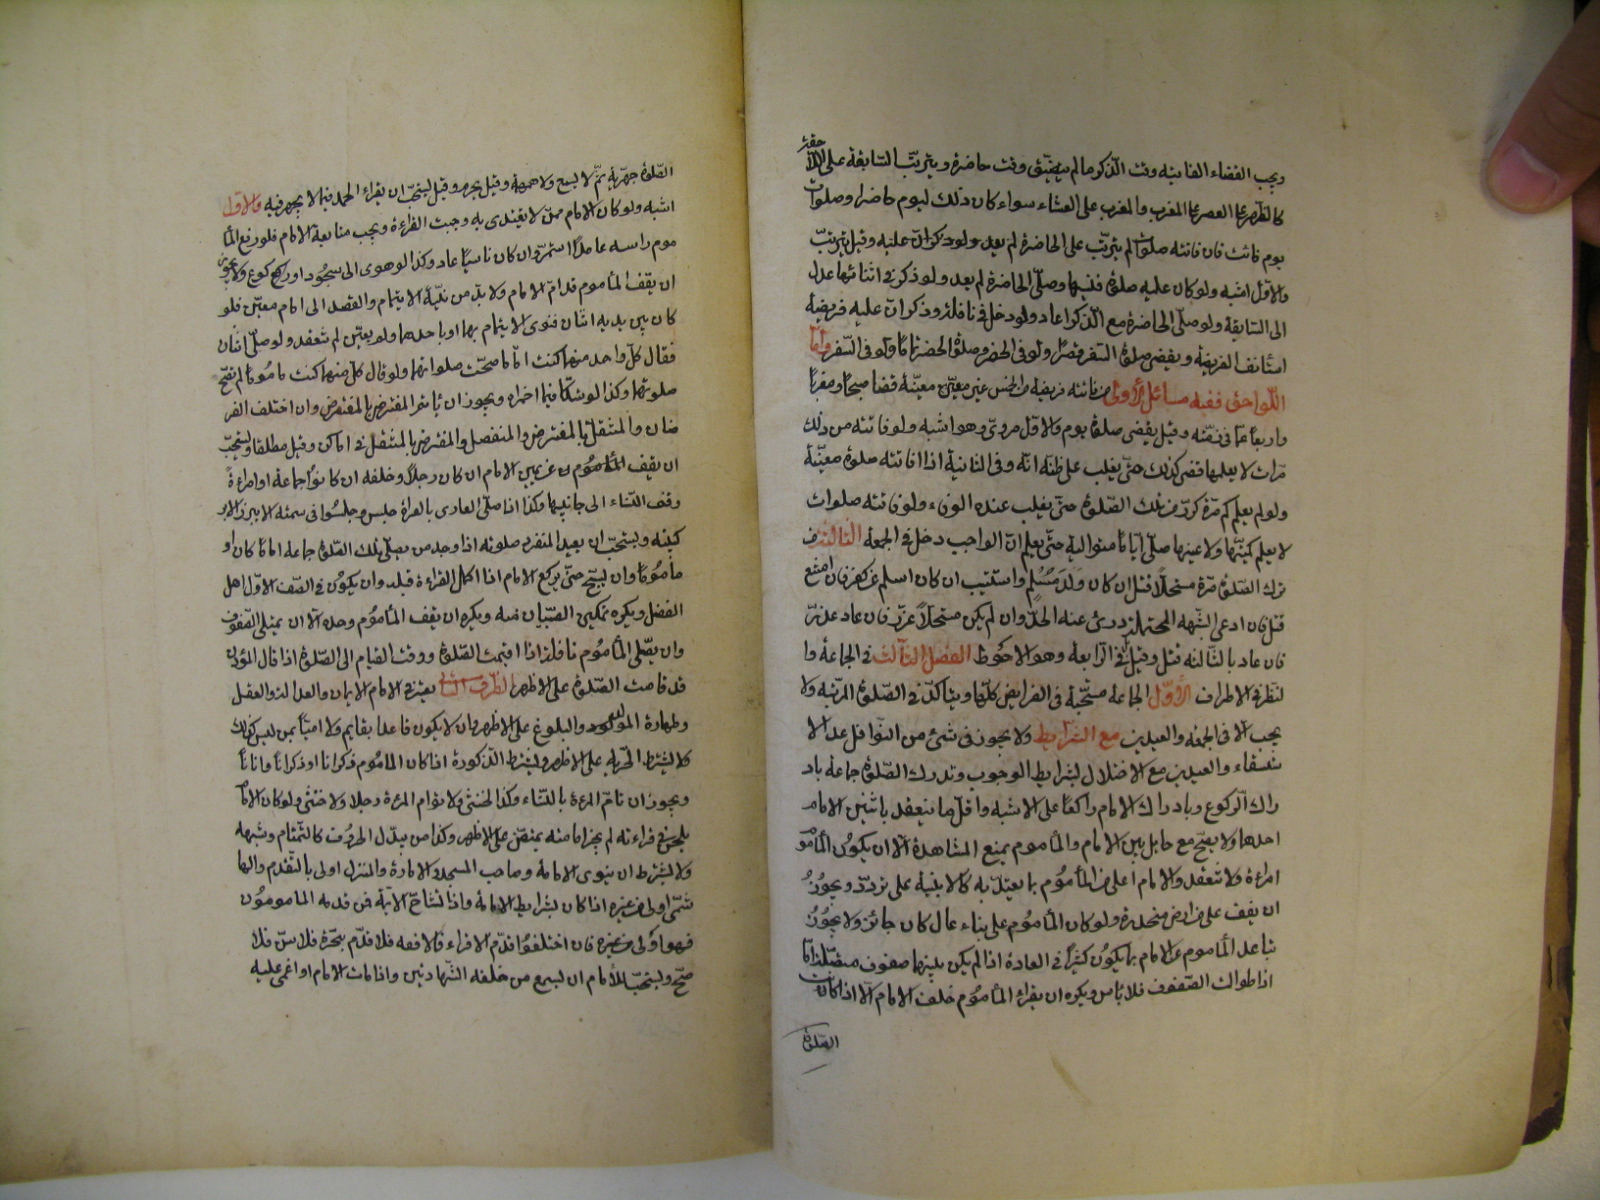 ويجب القضاء الفائته وقت الذكر ما لم يتضيّق وقت حاضرة ويترتب السّابقة على اللاحقة
كالظّهر على العصر والعصر على المغرب والمغرب على العشاء سواء كان ذلك ليوم حاضرا وصلوات
يوم فائت فان فاتته صلوات لم يترتّب على الحاضرة لم يعد ولو ذكر انّ عليه وقيل يترتّب
والاوّل اشبه ولو كان عليه صلوة فنسيها وصلّى الحاضرة لم يعد ولو ذكر في اثنائها عدل
الى السّابقة ولو صلّى الحاضرة مع الذّكر اعاد ولو دخل في نافلة وذكر انّ عليه فريضة
استانف الفريضة ويقضى صلوة السّفر قصرًا ولو في الحضر وصلوة الحضر تمامًا ولو في السّفر وامّا
اللّواحق ففيه مسائل الاولى من فاتته فريضة من الخمس غير معيّنة قضا صبحًا ومغربًا
واربعًا عمّا في ذمّته وقيل يقضى صلوة يوم والاوّل مروىّ وهو اشبه ولو فاتته من ذلك
مرّات لا يعلمها قضى كذلك حتّى يغلب على ظنّه انّه وفى الثانية اذا فاتته صلوة معيّنة
ولو لم يعلم كم مرّة كرّر من تلك الصّلوة حتّى يغلب عنده الوفاء ولو فاتته صلوات
لا يعلم كميّتها ولا عينها صلّى ايّامًا متوالية حتّى يعلم انّ الواجب دخل في الجملة الثالثة من
ترك الصّلوة مرّة مستحلّا قتل ان كان وَلَدَ مُسْلِم واستتيب ان كان اسلم عن كفر فان امتنع
قتل فان ادعى الشّبهة المحتملة درئ عنه الحدّ وان لم يكن مستحلًّا عزّر فان عاد عزّر
فان عاد بالثّالثة قتل وقيل في الرّابعة وهو الاحوط الفصل الثّالث في الجماعة وا
لنظر في الاطراف الاوّل الجماعة مستحبّة في الفرايض كلّها ويتاكّد في الصّلوة المرتبة ولا
يجب الّا في الجمعة والعيدين مع الشّرايط ولا يجوز في شئ من النّوافل عدا الا
ستسقاء والعيدين مع الاختلال بشرايط الوجوب وتدرك الصّلوة جماعة باد
راك الرّكوع وبادراك الامام راكعًا على الاشبه واقلّ ما ينعقد باثنين الامام
احدهما ولا يصحّ مع حايل بين الامام والماموم يمنع المشاهدة الّا ان يكون المأموم
امراءة ولا تنعقد والامام اعلى من المأموم بما يعتدّ به كالابنية على تردّد ويجوز
ان يقف على من ارض منحدرة ولو كان المأموم على بناء عال كان جائز ولا يجوز
تباعد المأموم عن الامام بما يكون كثيرًا في العادة اذا لم يكن بينهما صفوف متصّلة امّا
اذا طوالت الصّفوف فلا باس ويكره ان يقراء المأموم خلف الامام الّا اذا كانت
الصّلوة
الصّلوة جهريّة ثمّ لا يسمع ولا همهمة وقيل يحرم وقيل يستحبّ ان يقراء الحمد فيما لا يجهر فيه والاوّل
اشبه ولو كان الامام ممّن لا يقتدى به وجبت القراءة ويجب متابعة الامام فلو رفع المأ
موم راسه عامدًا استمرّ وان كان ناسيًا عاد وكذا لو هوى الى سجود او ركوع ولا يجوز
ان يقف المأموم قدام الامام ولا بدّ من نيّة الايتمام والقصد الى امام معيّن فلو
كان بين يديه اثنان فنوى الايتمام بهما او باحدهما ولم يعيّن لم تنعقد ولو صلّى اثنان
فقال كلّ واحد منهما كنت امامًا صحّت صلواتهما ولو قال كلّ منهما كنت مامومًا لم تصحّ
صلوتهما وكذا لو شكّا فيما اضمراه ويجوز ان يأتمّ المفترض بالمفترض وان اختلف الفر
ضان والمتنفّل بالمفترض والمتنفل والمفترض بالمتنفّل في اماكن وقيل مطلقا ويستحبّ
ان يقف المأموم عن يمين الامام ان كان رجلًا وخلفه ان كانوا جماعة او امراءة
وقف النّساء الى جانبها وكذا اذا صلّى العارى بالعراة جلس وجلسوا في سمته لا يبرز الّا بر
كبتيه ويستحبّ ان يعيد المنفرد صلوته اذا وجد من يصلّى تلك الصّلوة جماعة امامًا كان او
مامومًا وان يسبّح حتّى يركع الامام اذا اكمل القراءة قبله وان يكون في الصّف الاوّل اهل
الفضل ويكره تمكين الصّبيان منه ويكره ان يقف المأموم وحده الّا ان يمتلى الصّفوف
وان يصلّى المأموم نافلة اذا اقيمت الصّلوة ووقت القيام الى الصّلوة اذا قال المؤذن
قد قامت الصّلوة على الاظهر الطّرف الثّانى يعتبر في الامام الايمان والعدالة والعقل
وطهارة المولد والبلوغ على الاظهر وان لا يكون قاعدا بقايم ولا اميًّا بمن ليس كذلك
ولا يشترط الحرّية على الاظهر ويشترط الذّكورة اذا كان المأموم ذكرانا او ذكرانًا واناثًا
ويجوز ان تامّ المرءة بالنّساء وكذا الخنثى ولا تؤام المرءة رجلا ولا خنثى ولو كان الامام
يلحن في قراءته لم يجز امامته بمتقن على الاظهر وكذا من يبدّل الحروف كالتّمتام وشبهه
ولا يشترط ان ينوى الامامة وصاحب المسجد والامارة والمنزل اولى بالتّقدم والها
شمّى اولى من غيره اذا كان بشرايط الامامة واذا تشاحّ الائمّة فمن قدمه المامومون
فهو اولى من غيره فان اختلفوا قدّم الاقراء فالافقه فالاقدم هجرة فالاسنّ فالا
صبح ويستحبّ للأمام ان يسمع من خلفه الشّهادتين واذا مات الامام او اغمى عليه